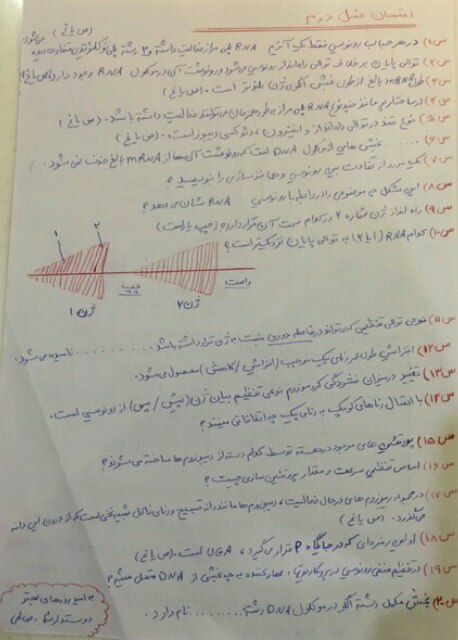 امتحان فصل دوم
س۱) در هر حباب رونویسی فقط یک آنزیم RNA پلی مراز فعالیت داشته و ۳ رشته پلی نوکلئوتیدی متفاوت دیده می‌شود (ص یا غ)
س۲) توالی پایان بر خلاف توالی راه انداز رونویسی می‌شود و رونوشت آن در مولکول RNA وجود دارد (ص یا غ)
س۳) طول mRNA بالغ از طول بخش الگوی ژن بلندتر است. (ص یا غ)
س۴) در ساختاری مانند چند نوع RNA پلی مراز به طور همزمان می‌توانند فعالیت داشته باشند. (ص یا غ)
س۵) نوع قند در توالی راه انداز و اینترون، دئوکسی ریبوز است. (ص یا غ)
س۶) ........ بخش هایی از مولکول DNA است که رونوشت آن‌ها از mRNA بالغ حذف نمی شود.
س۷) یک مورد از تفاوت بین رونویسی و همانندسازی را بنویسید؟
س۸) این شکل چه موضوعی را در رابطه با رونویسی RNA نشان می دهد؟
س۹) راه انداز ژن شماره ۲ در کدام سمت آن قرار دارد؟ (چپ یا راست)
س۱۰) کدام RNA (۱ یا ۲) به توالی پایان نزدیکتر است؟
۱ ۲
چپ راست
ژن ۱ ژن ۲
س۱۱) نوعی توالی تنظیمی که می تواند در فاصله دوری نسبت به ژن قرار داشته باشد ........ نامیده می شود.
س۱۲) افزایش طول عمر رنای پیک موجب (افزایش / کاهش) محصول می‌شود.
س۱۳) تغییر در میزان فشردگی کروموزوم نوعی تنظیم بیان ژن (پیش / پس) از رونویسی است.
س۱۴) با اتصال رناهای کوچک به رنای پیک چه اتفاقاتی میفتد؟
س۱۵) پروتئین های موجود در هسته توسط کدام دسته از ریبوزوم ها ساخته می شوند؟
س۱۶) اساس تنظیم سرعت و مقدار پروتئین سازی چیست؟
س۱۷) در مجموعه ریبوزوم های در حال فعالیت، ریبوزوم ها مانند دانه تسبیح و رنای ناقل شبیه نخی است که از درون این دانه
می گذرد. (ص یا غ)
س۱۸) اولین رمزه‌ای که در جایگاه P قرار می‌گیرد، UGA است. (ص یا غ)
س۱۹) در تنظیم منفی رونویسی در پروکاریوتها، مهارکننده به چه بخشی از DNA متصل میشود؟
س۲۰) بخش مکمل رشته الگو در مولکول DNA رشته ........ نام دارد.
به امید روزهای بهتر